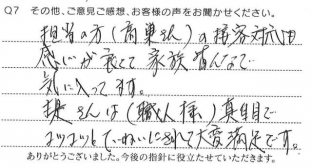 Q7 その他、ご意見ご感想、お客様の声をお聞かせください。
担当の方(高巣さん)の接客対応は
感じが良くて家族皆んなで
気に入ってます。
さんは(職人様)真面目で
コツコツとていねいにされて大変満足です。
ありがとうございました。今後の指針に役立たせていただきます。